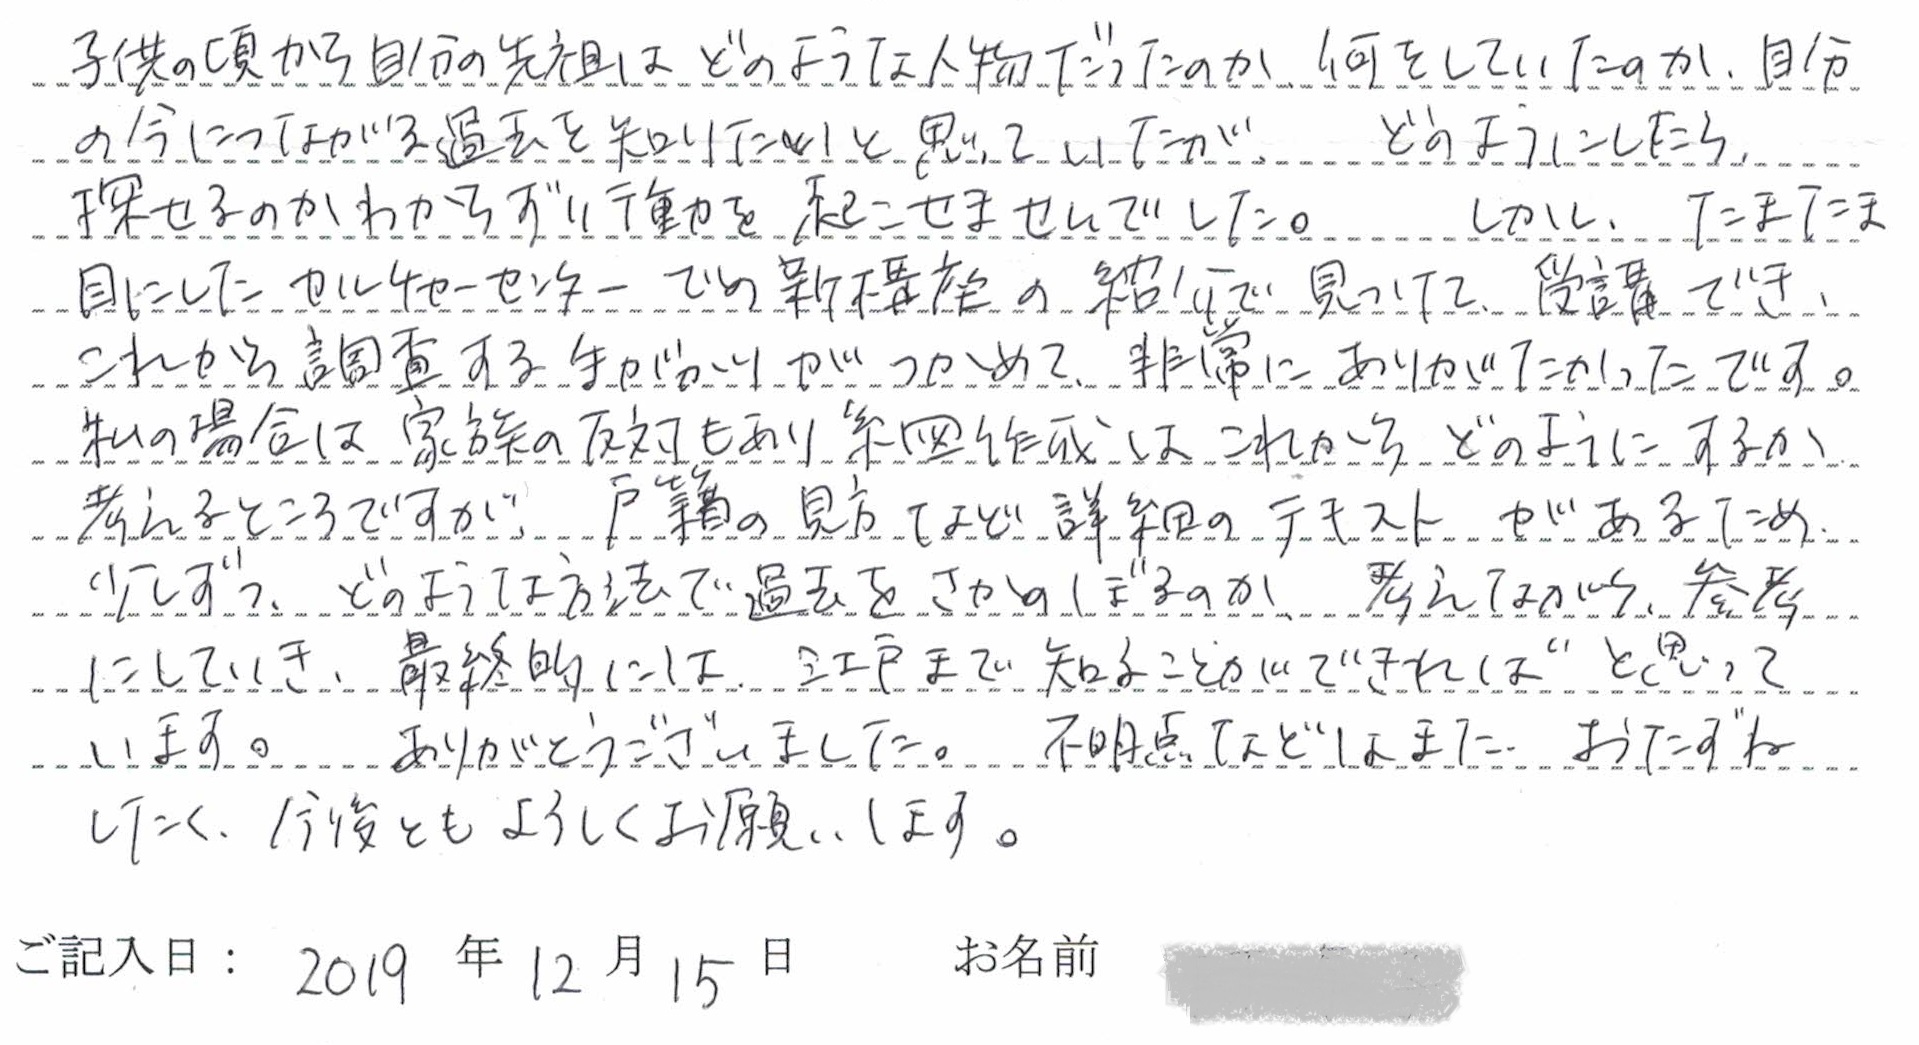 子供の頃から自分の先祖はどのような人物だったのか、何をしていたのか、自分
の今につながる過去を知りたいと思っていたが、 どのようにしたら、
探せるのかわからず行動を起こせませんでした。 しかし、たまたま
目にしたカルチャーセンターでの新講座の紹介で見つけて、受講でき、
これから調査する手がかりがつかめて、非常にありがたかったです。
私の場合は家族の反対もあり系図作成はこれからどのようにするか
考えるところですが、 戸籍の見方など詳細のテキストがあるため、
少しずつ、どのような方法で過去をさかのぼるのか、考えながら、参考
にしていき、最終的には、江戸まで知ることができればと思って
います。 ありがとうございました。 不明点などはまた、おたずね
したく、今後ともよろしくお願いします。
ご記入日： 2019 年 12 月 15 日 お名前